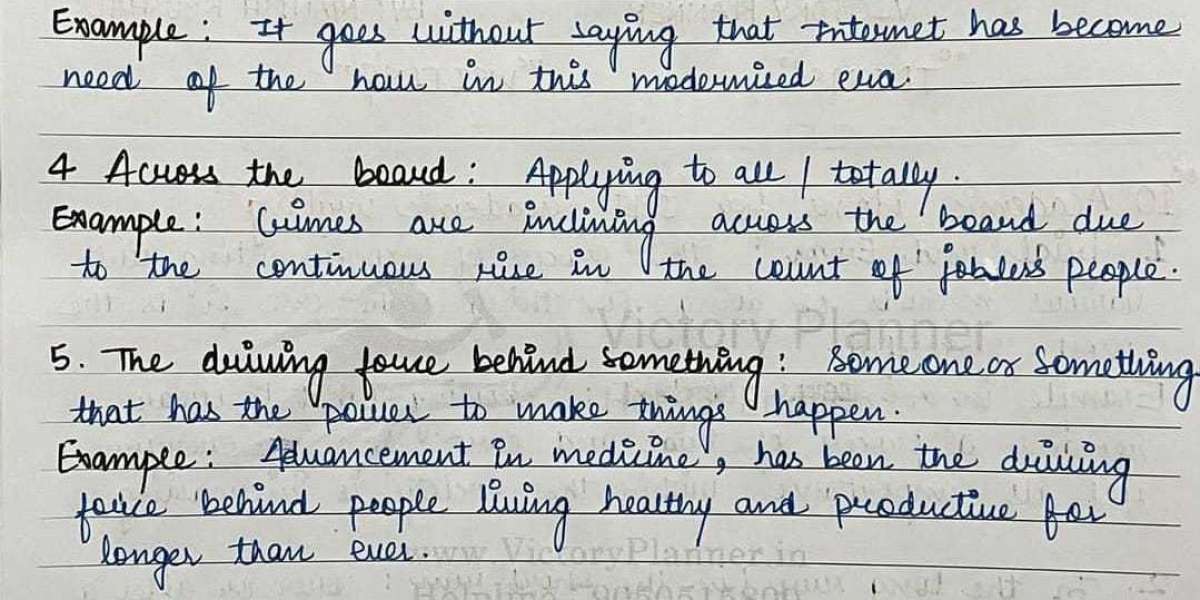 Example : It goes without saying that Internet has become
need of the hour in this modernised era.
4 Across the board : Applying to all / totally .
Example : Crimes are inclining across the board due
to the continuous rise in the count of jobless people.
Victory Planner
5. The driving force behind something : Someone or Something
that has the power to make things happen.
Example : Advancement in medicine, has been the driving
force behind people living healthy and productive for
longer than ever.
www.VictoryPlanner.in